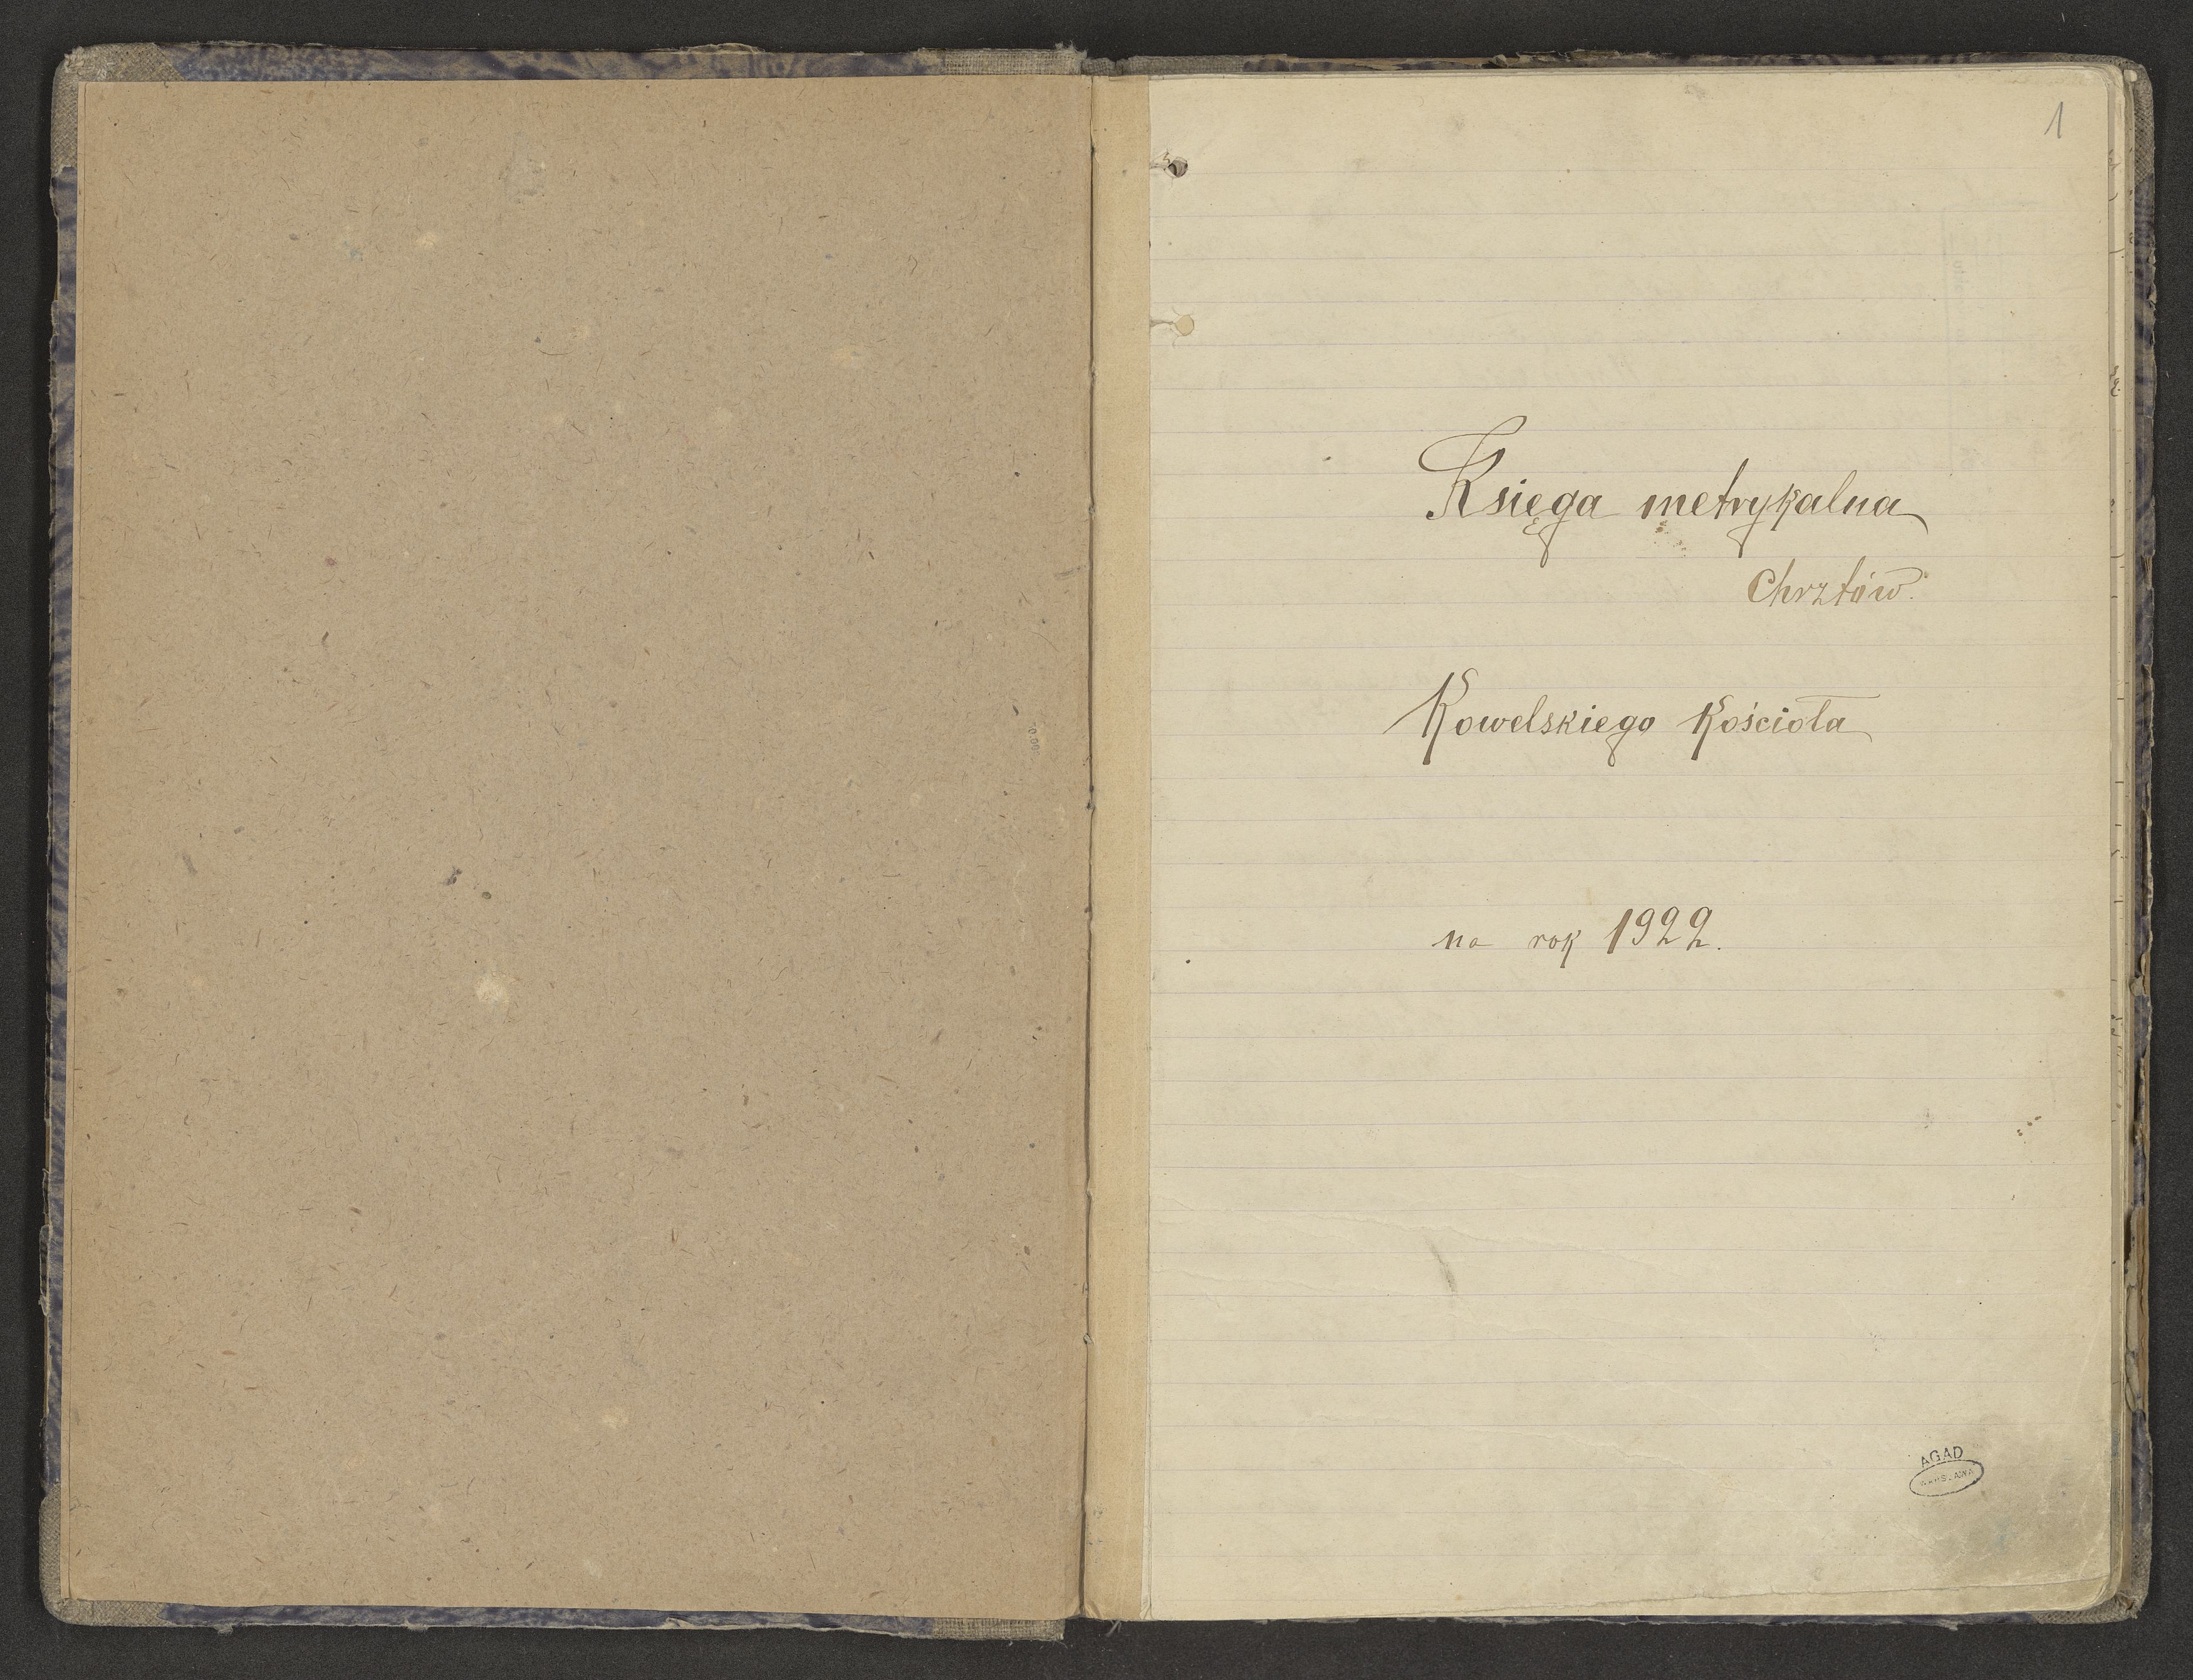 1
Księga metrykalna
Chrztów.
Kowelskiego Kościoła
na rok 1922.
AGAD
WARSZAWA